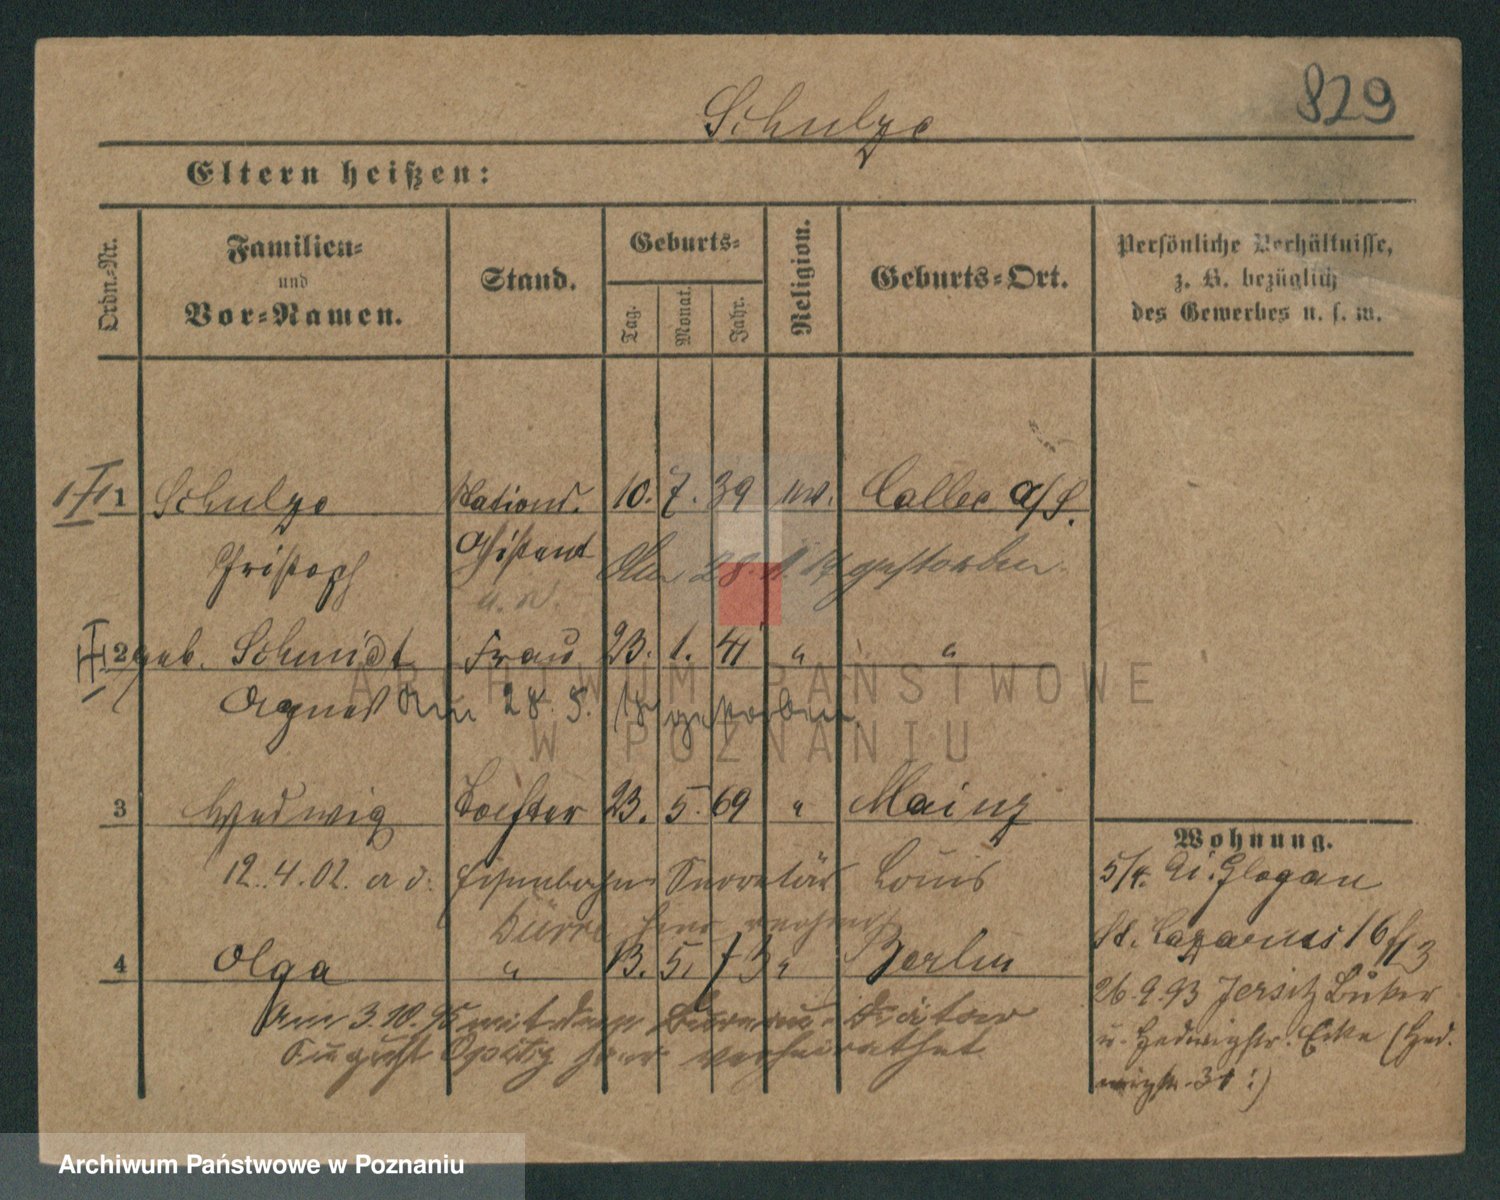 829
Schulze
Eltern heißen:
Ordn.-Nr.
Familien-
und
Vor-Namen.
Stand.
Geburts-
Tag.
Monat.
Jahr.
Religion.
Geburts-Ort.
Persönliche Verhältnisse,
z. B. bezüglich
des Gewerbes u. s. w.
1 Schulze Stations. 10. 7. 39 ev. Calbe a/S.
Christoph Assistent Am 28. 1. 17 gestorben.
a. D.
2 geb. Schmidt Frau 23. 1. 41 " "
Agnes Am 28. 5. 18 gestorben
3 Hedwig Tochter 23. 5. 69 " Mainz
12.4.02. a d. Eisenbahn Secretär Louis
Dürre hier verheir
4 Olga " 13. 5. 73 " Berlin
Am 3.10.95 mit dem Bureau-Diätar
August Opitz hier verheirathet
Wohnung.
5/4. Glogau
St. Lazarus 16
26.9.93 Jersitz Buker
u. Hedwigstr. Ecke (Hed.
wigstr. 31!)
ARCHIWUM PAŃSTWOWE
W POZNANIU
Archiwum Państwowe w Poznaniu